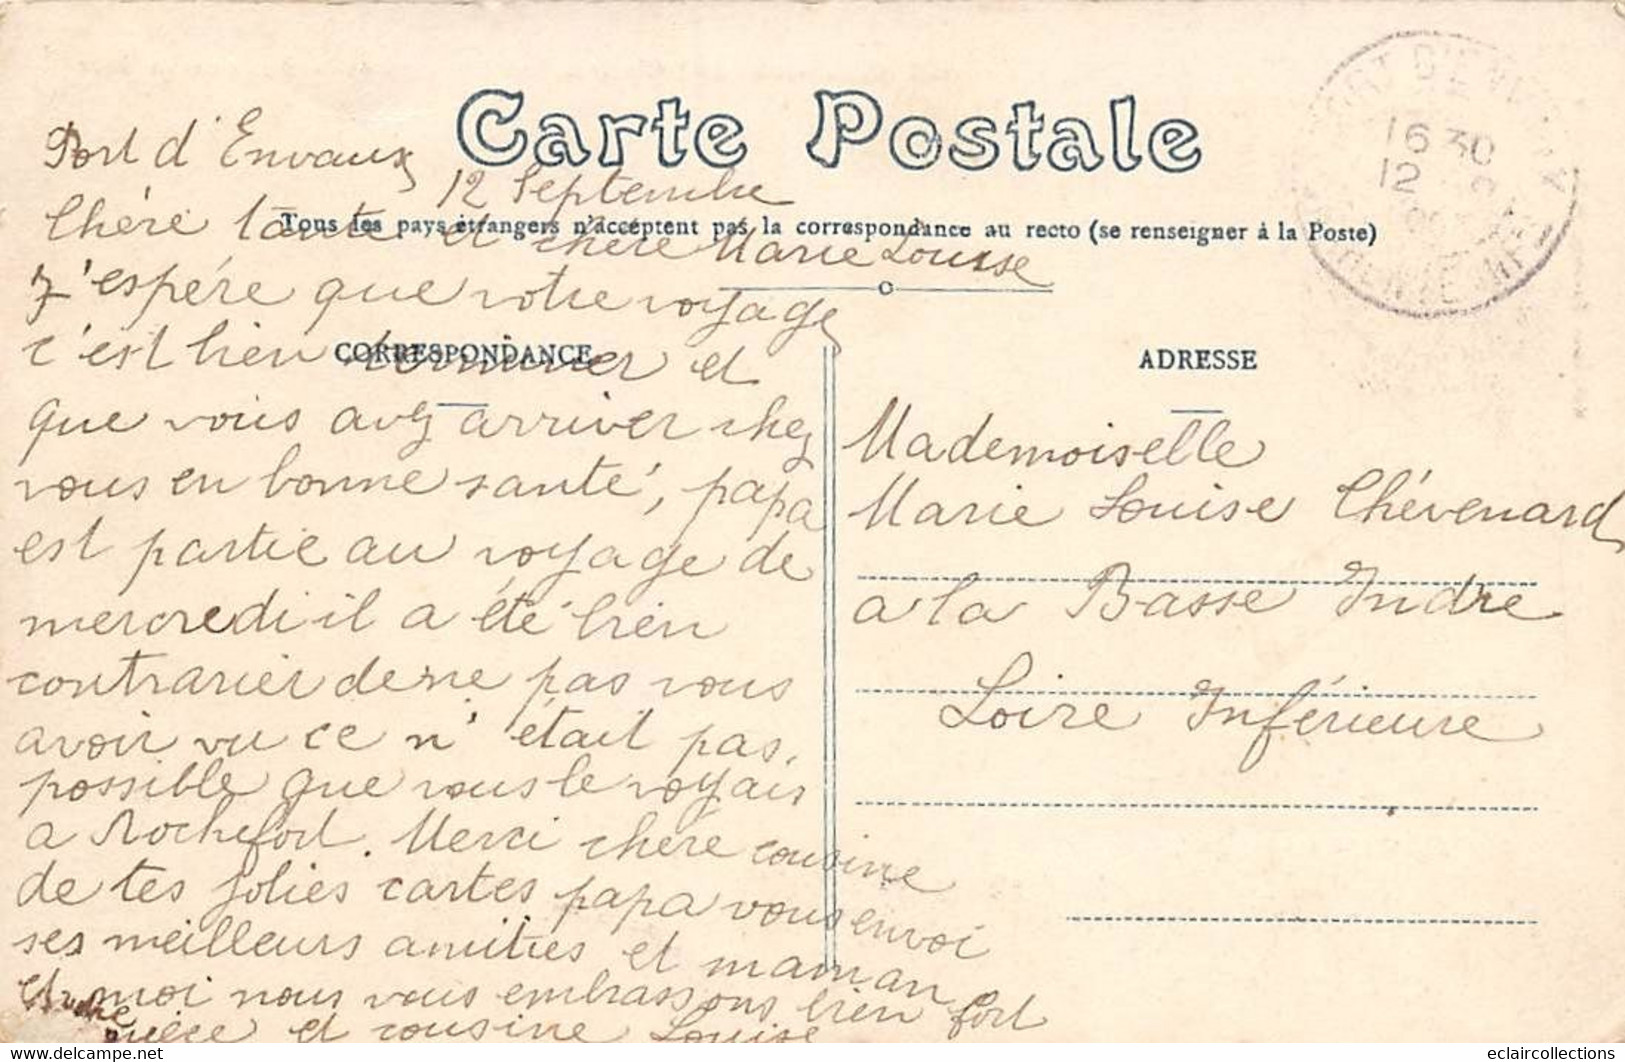 Carte Postale
Port d'Envaux
12 Septembre
Tous les pays étrangers n'acceptent pas la correspondance au recto (se renseigner à la Poste)
Chère tante et chère Marie Louise
J'espére que votre voyage
c'est bien terminer et
que vous avez arriver chez
vous en bonne santé, papa
est partie au voyage de
mercredi il a été bien
contrarier de ne pas vous
avoir vu ce n'était pas
possible que vous le voyais
a Rochefort. Merci chère cousine
de tes jolies cartes papa vous envoi
ses meilleurs amitiés et maman
et moi nous vous embrassons bien fort
nièce et cousine Louise
CORRESPONDANCE
ADRESSE
Mademoiselle
Marie Louise Chévenard
a la Basse Indre
Loire Inférieure
16 30
12
eclaircollections